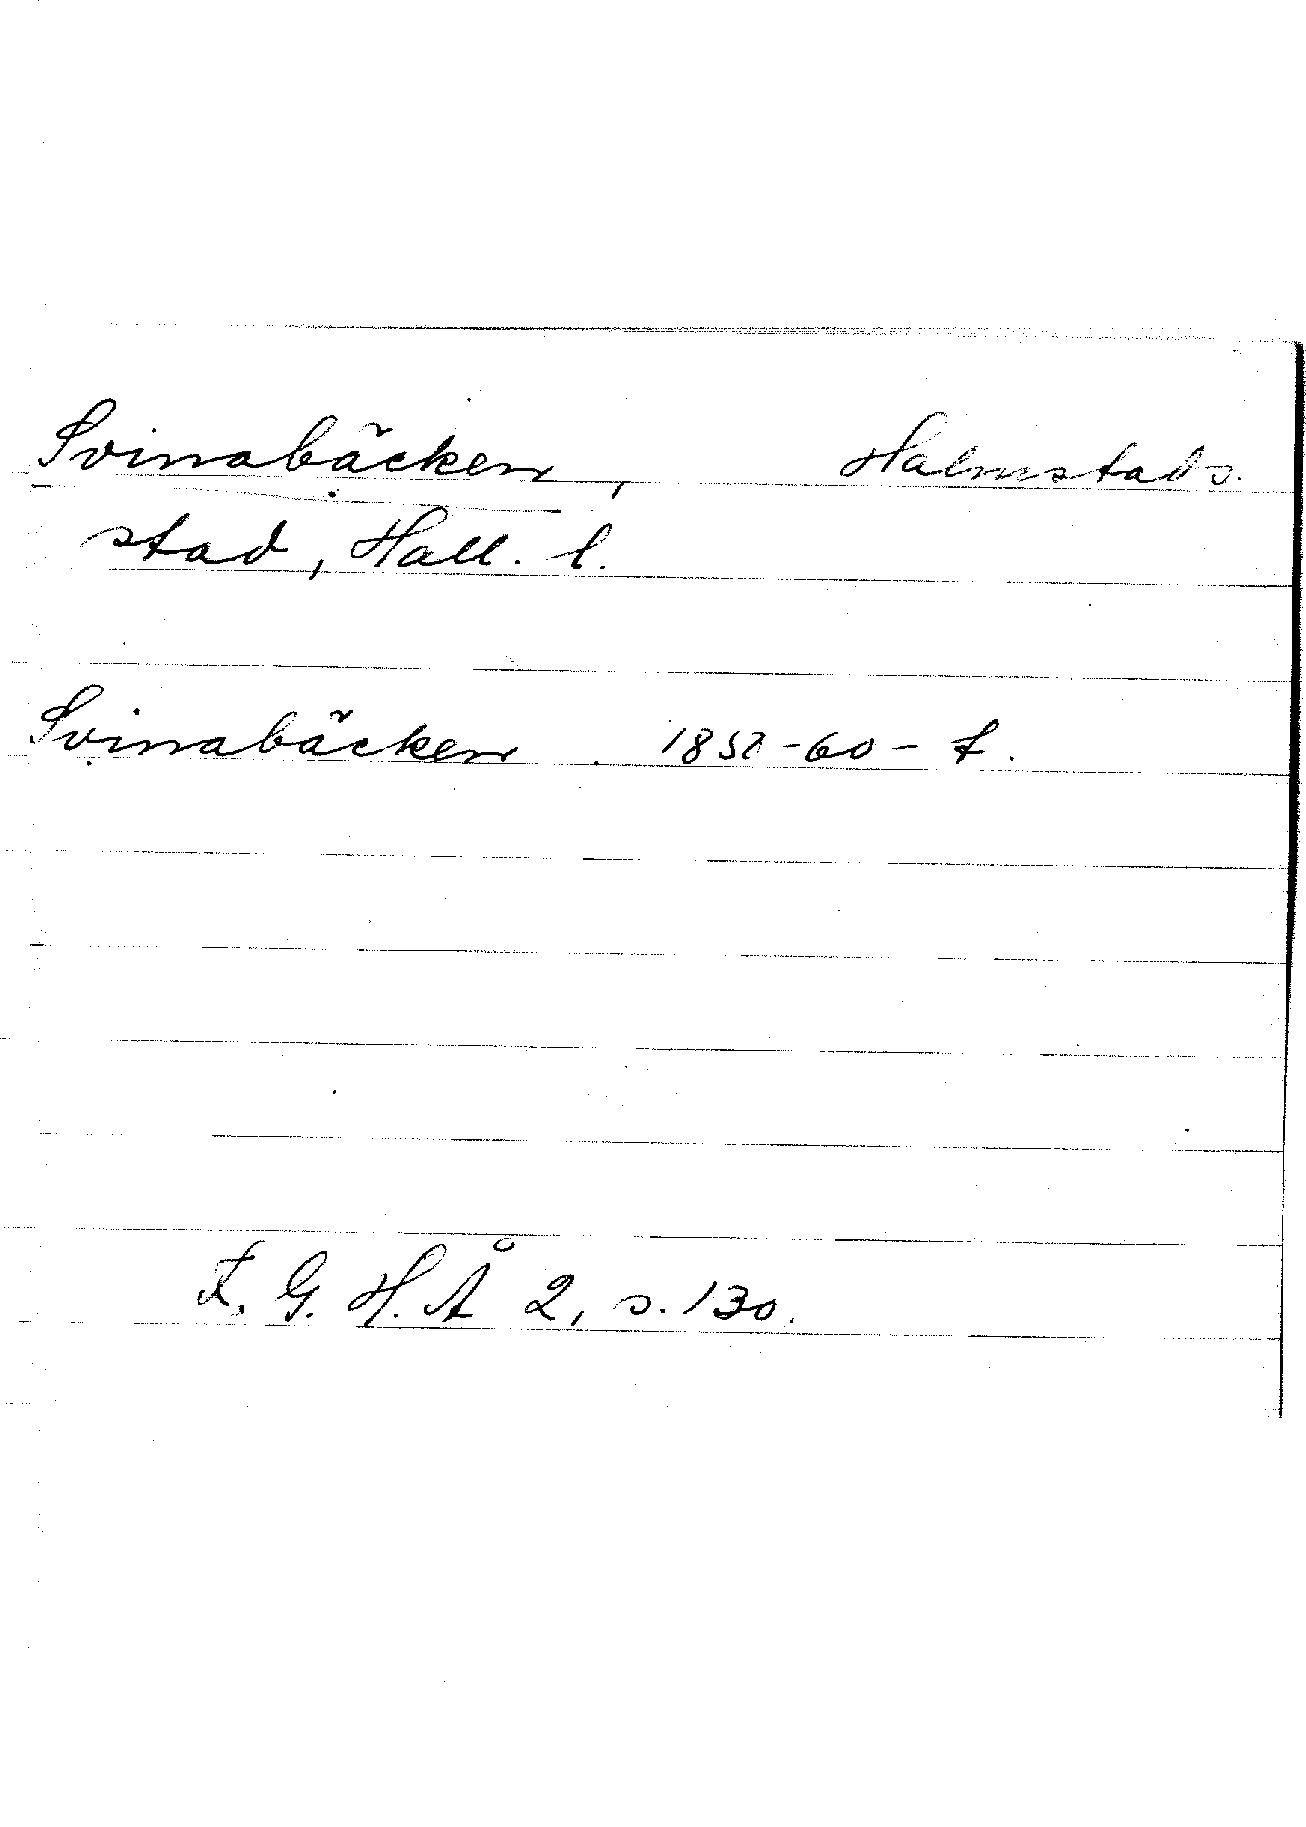 Svinabäcken, Halmstads
stad, Hall. l.
Svinabäcken 1857-60-t.
F. G. H. Å 2, s. 130.